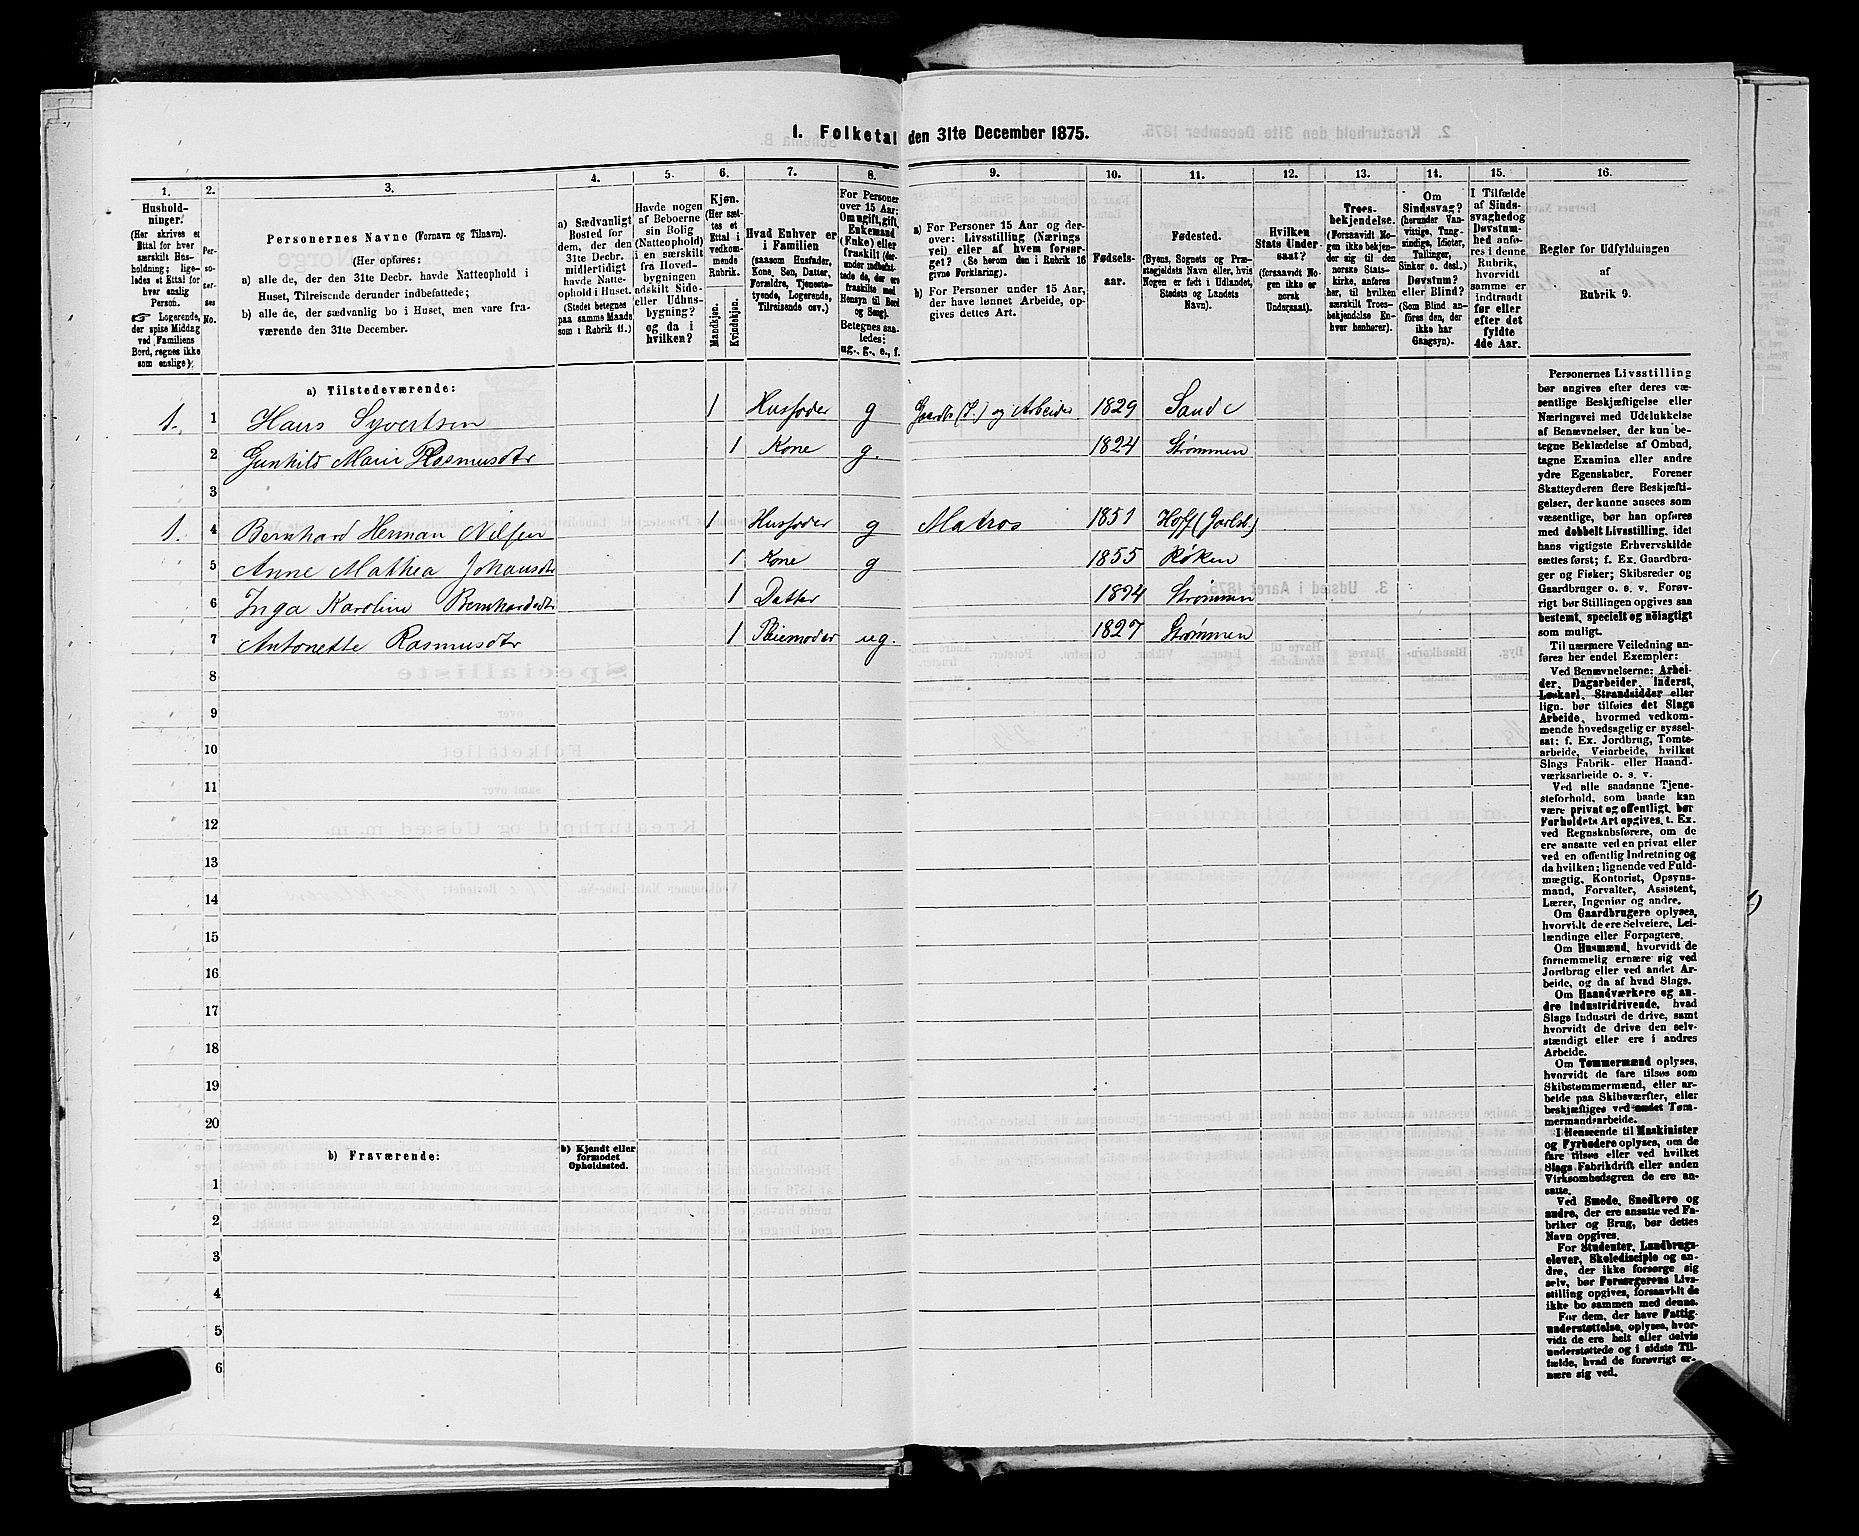 1. Folketal den 31te December 1875.
1. 2. 3. 4. 5. 6. 7. 8. 9. 10. 11. 12. 13. 14. 15. 16.
Husholdninger.
(Her skrives et Ettal for hver særskilt Husholdning; ligeledes et Ettal for hver enslig Person.
☞ Logerende, der spise Middag ved Familiens Bord, regnes ikke som enslige).
Personernes No.
Personernes Navne (Fornavn og Tilnavn).
(Her opføres:
a) alle de, der den 31te Decbr. havde Natteophold i Huset, Tilreisende derunder indbefattede;
b) alle de, der sædvanlig bo i Huset, men vare fraværende den 31te December.
a) Sædvanligt Bosted for dem, der den 31te Decbr. midlertidigt havde Natteophold i Huset. (Stedet betegnes paa samme Maade som i Rubrik 11.)
Havde nogen af Beboerne sin Bolig (Natteophold) i en særskilt fra Hovedbygningen adskilt Side- eller Udhusbygning? og da i hvilken?
Kjøn. (Her sættes et Ettal i vedkommende Rubrik.
Mandkjøn.
Kvindekjøn.
Hvad Enhver er i Familien
(saasom Husfader, Kone, Søn, Datter, Forældre, Tjenestetyende, Logerende, Tilreisende osv.)
For Personer over 15 Aar: Om ugift, gift, Enkemand (Enke) eller fraskilt
Betegnes saaledes: ug., g., e., f.
a) For Personer 15 Aar og derover: Livsstilling (Næringsvei) eller af hvem forsørget? (Se herom den i Rubrik 16 givne Forklaring.)
b) For Personer under 15 Aar, der have lønnet Arbeide, opgives dettes Art.
Fødselsaar.
Fødested.
(Byens, Sognets og Præstegjeldets Navn eller, hvis Nogen er født i Udlandet, Stedets og Landets Navn).
Hvilken Stats Undersaat?
(forsaavidt Nogen ikke er norsk Undersaat).
Troesbekjendelse.
(Forsaavidt Nogen ikke bekjender sig til den norske Statskirke, anføres her, til hvilken særskilt Troesbekjendelse Enhver henhører).
Om Sindssvag? (herunder Vanvittige, Tungsindige, Idioter, Tullinger, Sinker o. desl.) Døvstum? eller Blind?
(Som Blind anføres den, der ikke har Gangsyn).
I Tilfælde af Sindssvaghed og Døvstumhed anføres i denne Rubrik, hvorvidt samme er indtraadt før eller efter det fyldte 4de Aar.
Regler for Udfyldningen af Rubrik 9.
a) Tilstedeværende:
1. 1 Hans Syvertsen 1 Husfader g Gaardbr (S.) og Arbeider 1829 Sande
2 Gunhild Marie Rasmusdtr 1 Kone g. 1824 Strømmen
3
1. 4 Bernhard Herman Nilsen 1 Husfader g Matros 1851 Hoff (Jarlsb.)
5 Anne Mathea Johansdtr 1 Kone g 1855 Røken
6 Inga Karoline Bernhardsdtr 1 Datter 1874 Strømmen
7 Antonette Rasmusdtr 1 Pleiemoder ug. 1827 Strømmen
8
9
10
11
12
13
14
15
16
17
18
19
20
b) Fraværende:
b) Kjendt eller formodet Opholdssted.
1
2
3
4
5
6
Personernes Livsstilling
bør angives efter deres væ-
sentlige Beskjæftigelse eller
Næringsvei med Udelukkelse
af Benævnelser, der kun be-
tegne Beklædelse af Ombud,
tagne Examina eller andre
ydre Egenskaber. Forener
Skatteyderen flere Beskjæfti-
gelser, der kunne ansees som
væsentlige, bør han opføres
med dobbelt Livsstilling, idet
hans vigtigste Erhvervskilde
sættes først; f. Ex. Gaardbru-
ger og Fisker; Skibsreder og
Gaardbruger o. s. v. Forøv-
rigt bør Stillingen opgives saa
bestemt, specielt og nøiagtigt
som muligt.
Til nærmere Veiledning an-
føres her endel Exempler:
Ved Benævnelserne Arbei-
der, Dagarbeider Inderst,
Løskarl, Strandsidder eller
lign. bør tilføies det Slags
Arbeide, hvormed vedkom-
mende hovedsagelig er syssel-
sat; f. Ex. Jordbrug, Tomte-
arbeide, Veiarbeide, hvilket
Slags Fabrik- eller Haand-
værksarbeide o. s. v.
Ved alle saadanne Tjene-
steforhold, som baade kan
være privat og offentligt, bør
Forholdets Art opgives, t. Ex.
ved Regnskabsførere, om de
ere ansatte ved en privat eller
ved en offentlig Indretning og
da hvilken; lignende ved Fuld-
mægtig, Kontorist, Opsyns-
mand, Forvalter, Assistent,
Lærer, Ingeniør og andre.
Om Gaardbrugere oplyses,
hvorvidt de ere Selveiere, Lei-
lændinge eller Forpagtere.
Om Husmænd, hvorvidt de
fornemmelig ernære sig ved
Jordbrug eller ved andet Ar-
beide, og da af hvad Slags.
Om Haandværkere og an-
dre Industridrivende, hvad
Slags Industri de drive, samt
hvorvidt de drive den selv-
stændigt eller ere i andres
Arbeide.
Om Tømmermænd oplyses,
hvorvidt de fare tilsøs som
Skibstømmermænd, eller ar-
beide paa Skibsværfter, eller
beskjæftiges ved andet Tøm-
mermandsarbeide.
I Henseende til Maskinister
og Fyrbødere oplyses, om de
fare tilsøs eller ved hvilket
Slags Fabrikdrift eller anden
Virksomhedsgren de ere an-
satte.
Ved Smede, Snedkere og
andre, der ere ansatte ved Fa-
briker og Brug, bør dettes
Navn opgives.
For Studenter, Landbrugs-
elever, Skoledisciple og an-
dre, der ikke forsørge sig
selv, bør Forsørgerens Livs-
stilling opgives, forsaavidt de
ikke bo sammen med denne.
For dem, der have Fattig-
understøttelse, oplyses, hvor-
vidt de ere helt eller delvis
understøttede og i sidste Til-
fælde, hvad de forøvrigt er-
nære sig ved.